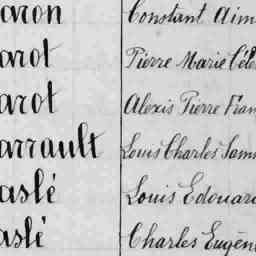 aron Constant Aim
arot Pierre Marie Céle
arot Alexis Pierre Fran
arrault Louis Charles Sam
aslé Louis Edouard
aslé Charles Eugèn